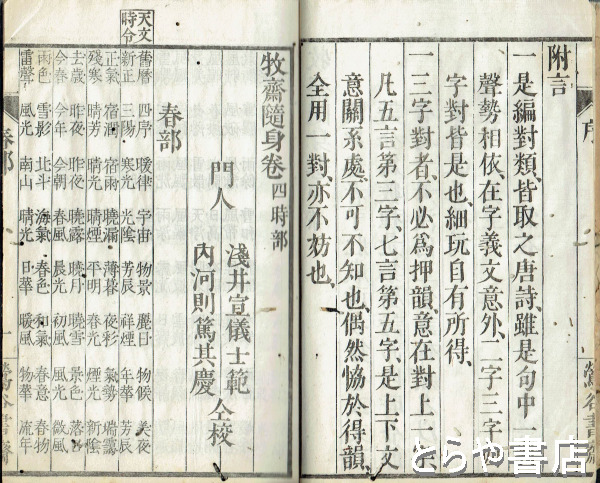 附言
一是編對類、皆取之唐詩、雖是句中一
聲勢相依、在字義文意外、二字三字四
字對皆是也、細玩自有所得、
一三字對者、不必爲押韻、意在對上一字
凡五言第三字、七言第五字、是上下文
意關系處、不可不知也、偶然恊於得韻、
全用一對、亦不妨也、
序
鶯谷書齋
牧齋隨身卷 四時部
門人
淺井宣儀士範
內河則篤其慶
仝校
春部
天文
時令
舊曆 四序 暖律 宇宙 物景 麗日 物候 美夜
新正 三陽 寒光 光陰 芳辰 祥煙 年華 芳辰
正氣 宿酒 宿雨 曉漏 薄暮 夜彩 氣勢
殘寒 晴芳 晴光 晴煙 平明 春光 煙光 新陰
去歲 昨夜 昨夜 曉露 曉月 曉雪 景色 落
今春 今年 今朝 春風 晨光 初風 風光 微風
雨色 雪影 北斗 海氣 春色 和氣 春意 春物
雷聲 風光 南山 晴光 日華 暖風 物華 流年
春部
鶯谷書齋
とらや書店